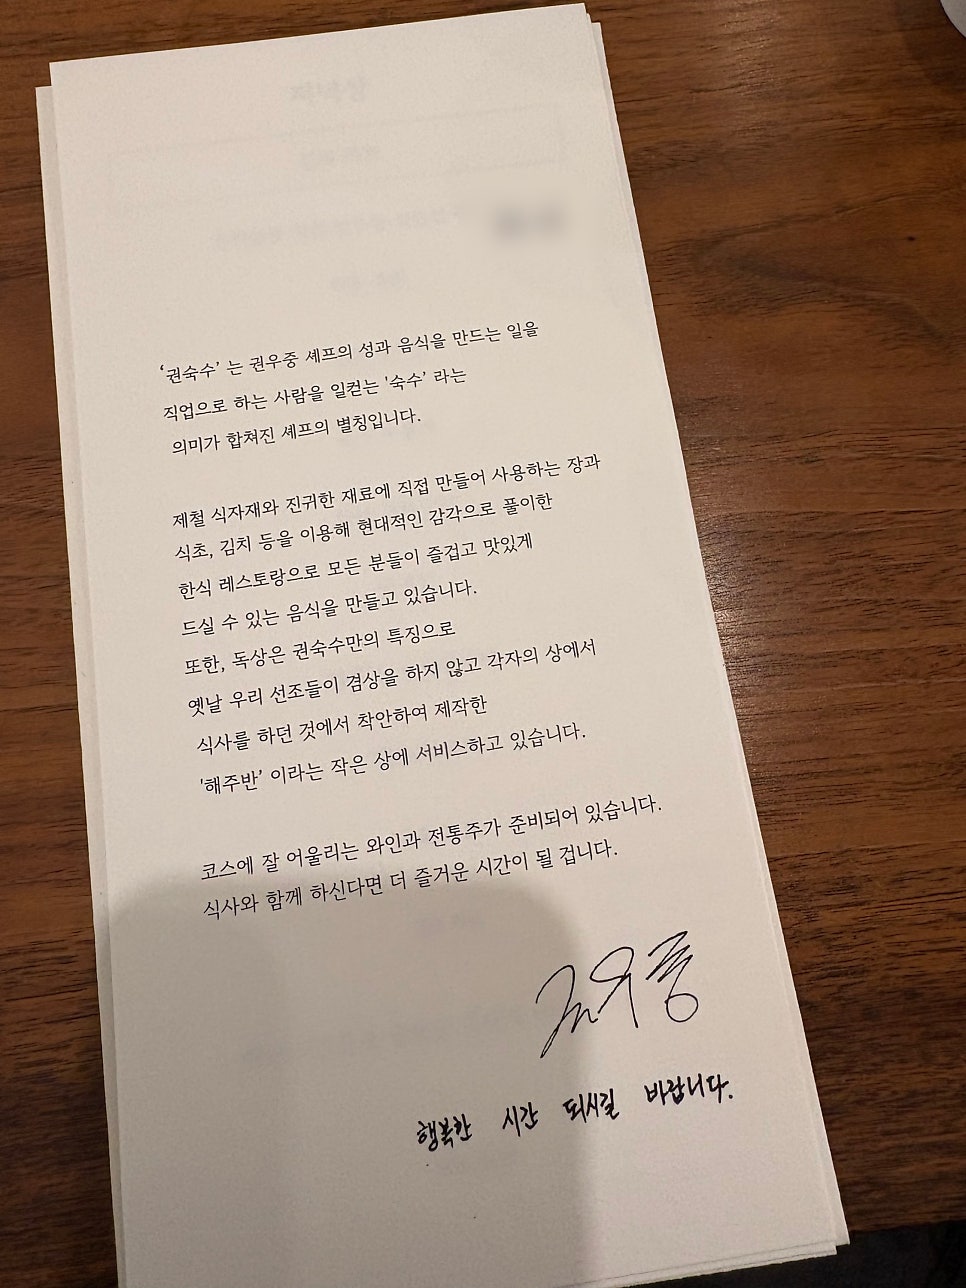 ‘권숙수’ 는 권우중 셰프의 성과 음식을 만드는 일을
직업으로 하는 사람을 일컫는 '숙수’ 라는
의미가 합쳐진 셰프의 별칭입니다.
제철 식자재와 진귀한 재료에 직접 만들어 사용하는 장과
식초, 김치 등을 이용해 현대적인 감각으로 풀이한
한식 레스토랑으로 모든 분들이 즐겁고 맛있게
드실 수 있는 음식을 만들고 있습니다.
또한, 독상은 권숙수만의 특징으로
옛날 우리 선조들이 겸상을 하지 않고 각자의 상에서
식사를 하던 것에서 착안하여 제작한
'해주반’ 이라는 작은 상에 서비스하고 있습니다.
코스에 잘 어울리는 와인과 전통주가 준비되어 있습니다.
식사와 함께 하신다면 더 즐거운 시간이 될 겁니다.
권우중
행복한 시간 되시길 바랍니다.